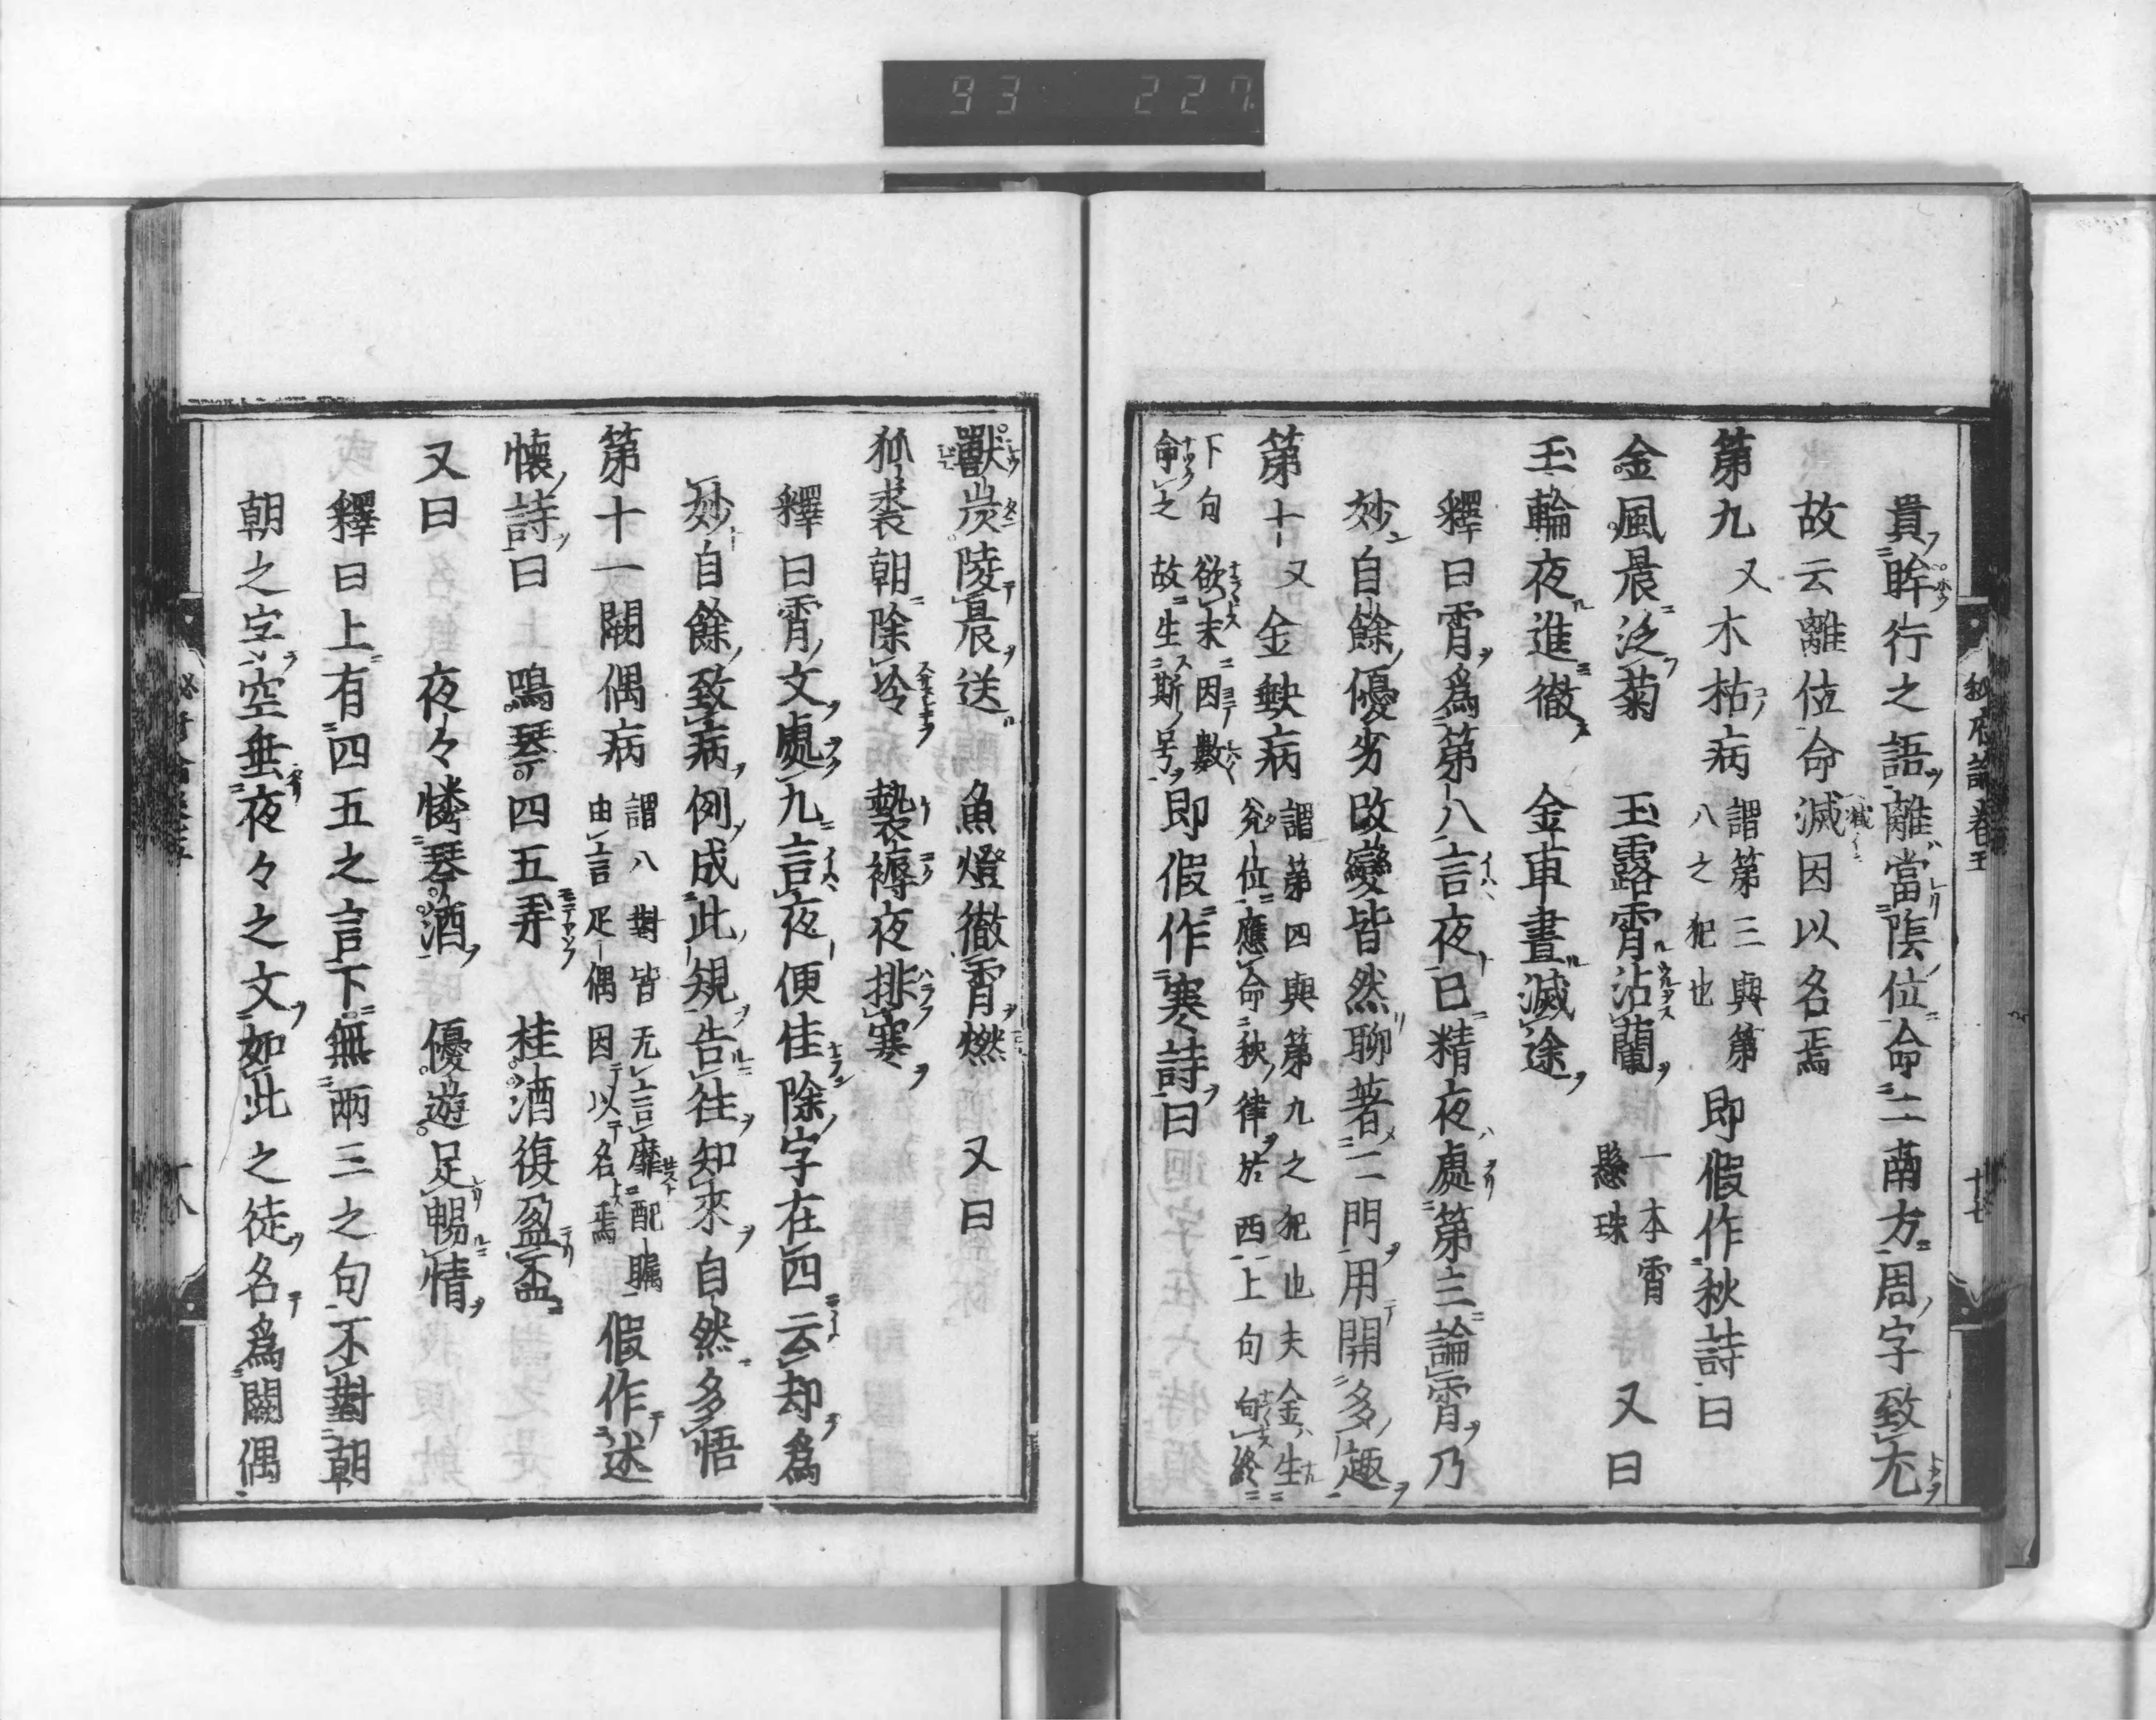 93 227
貴眸行之語離當陰位命二南方周字致尤
故云離位命滅因以名焉
第九又木枯病
謂第三與第
八之犯也
即假作秋詩曰
金風晨泛菊 玉露霄沾蘭
一本霄
懸珠
又曰
玉輪夜進徹 金車晝滅途
釋曰霄爲第八言夜已精夜處第三論霄乃
妙自餘優劣改變皆然聊著二門用開多趣
第十又金缺病
謂第四與第九之犯也夫金生
兊位應命秋律於西上句句終
下句欲末因數
命之故生斯号
即假作寒詩曰
獸炭陵晨送 魚燈徹霄燃 又曰
狐裘朝除冷 褻褥夜排寒
釋曰霄文處九言夜便佳除字在四云却爲
妙自餘致病例成此規告往知來自然多悟
第十一闕偶病
謂八對皆无言靡配矚
由言疋偶因以名焉
假作述
懷詩曰 鳴琴四五弄 桂酒復盈盃
又曰 夜々憐琴酒 優遊足暢情
釋曰上有四五之言下無兩三之句不對朝
朝之字空垂夜々之文如此之徒名爲闕偶